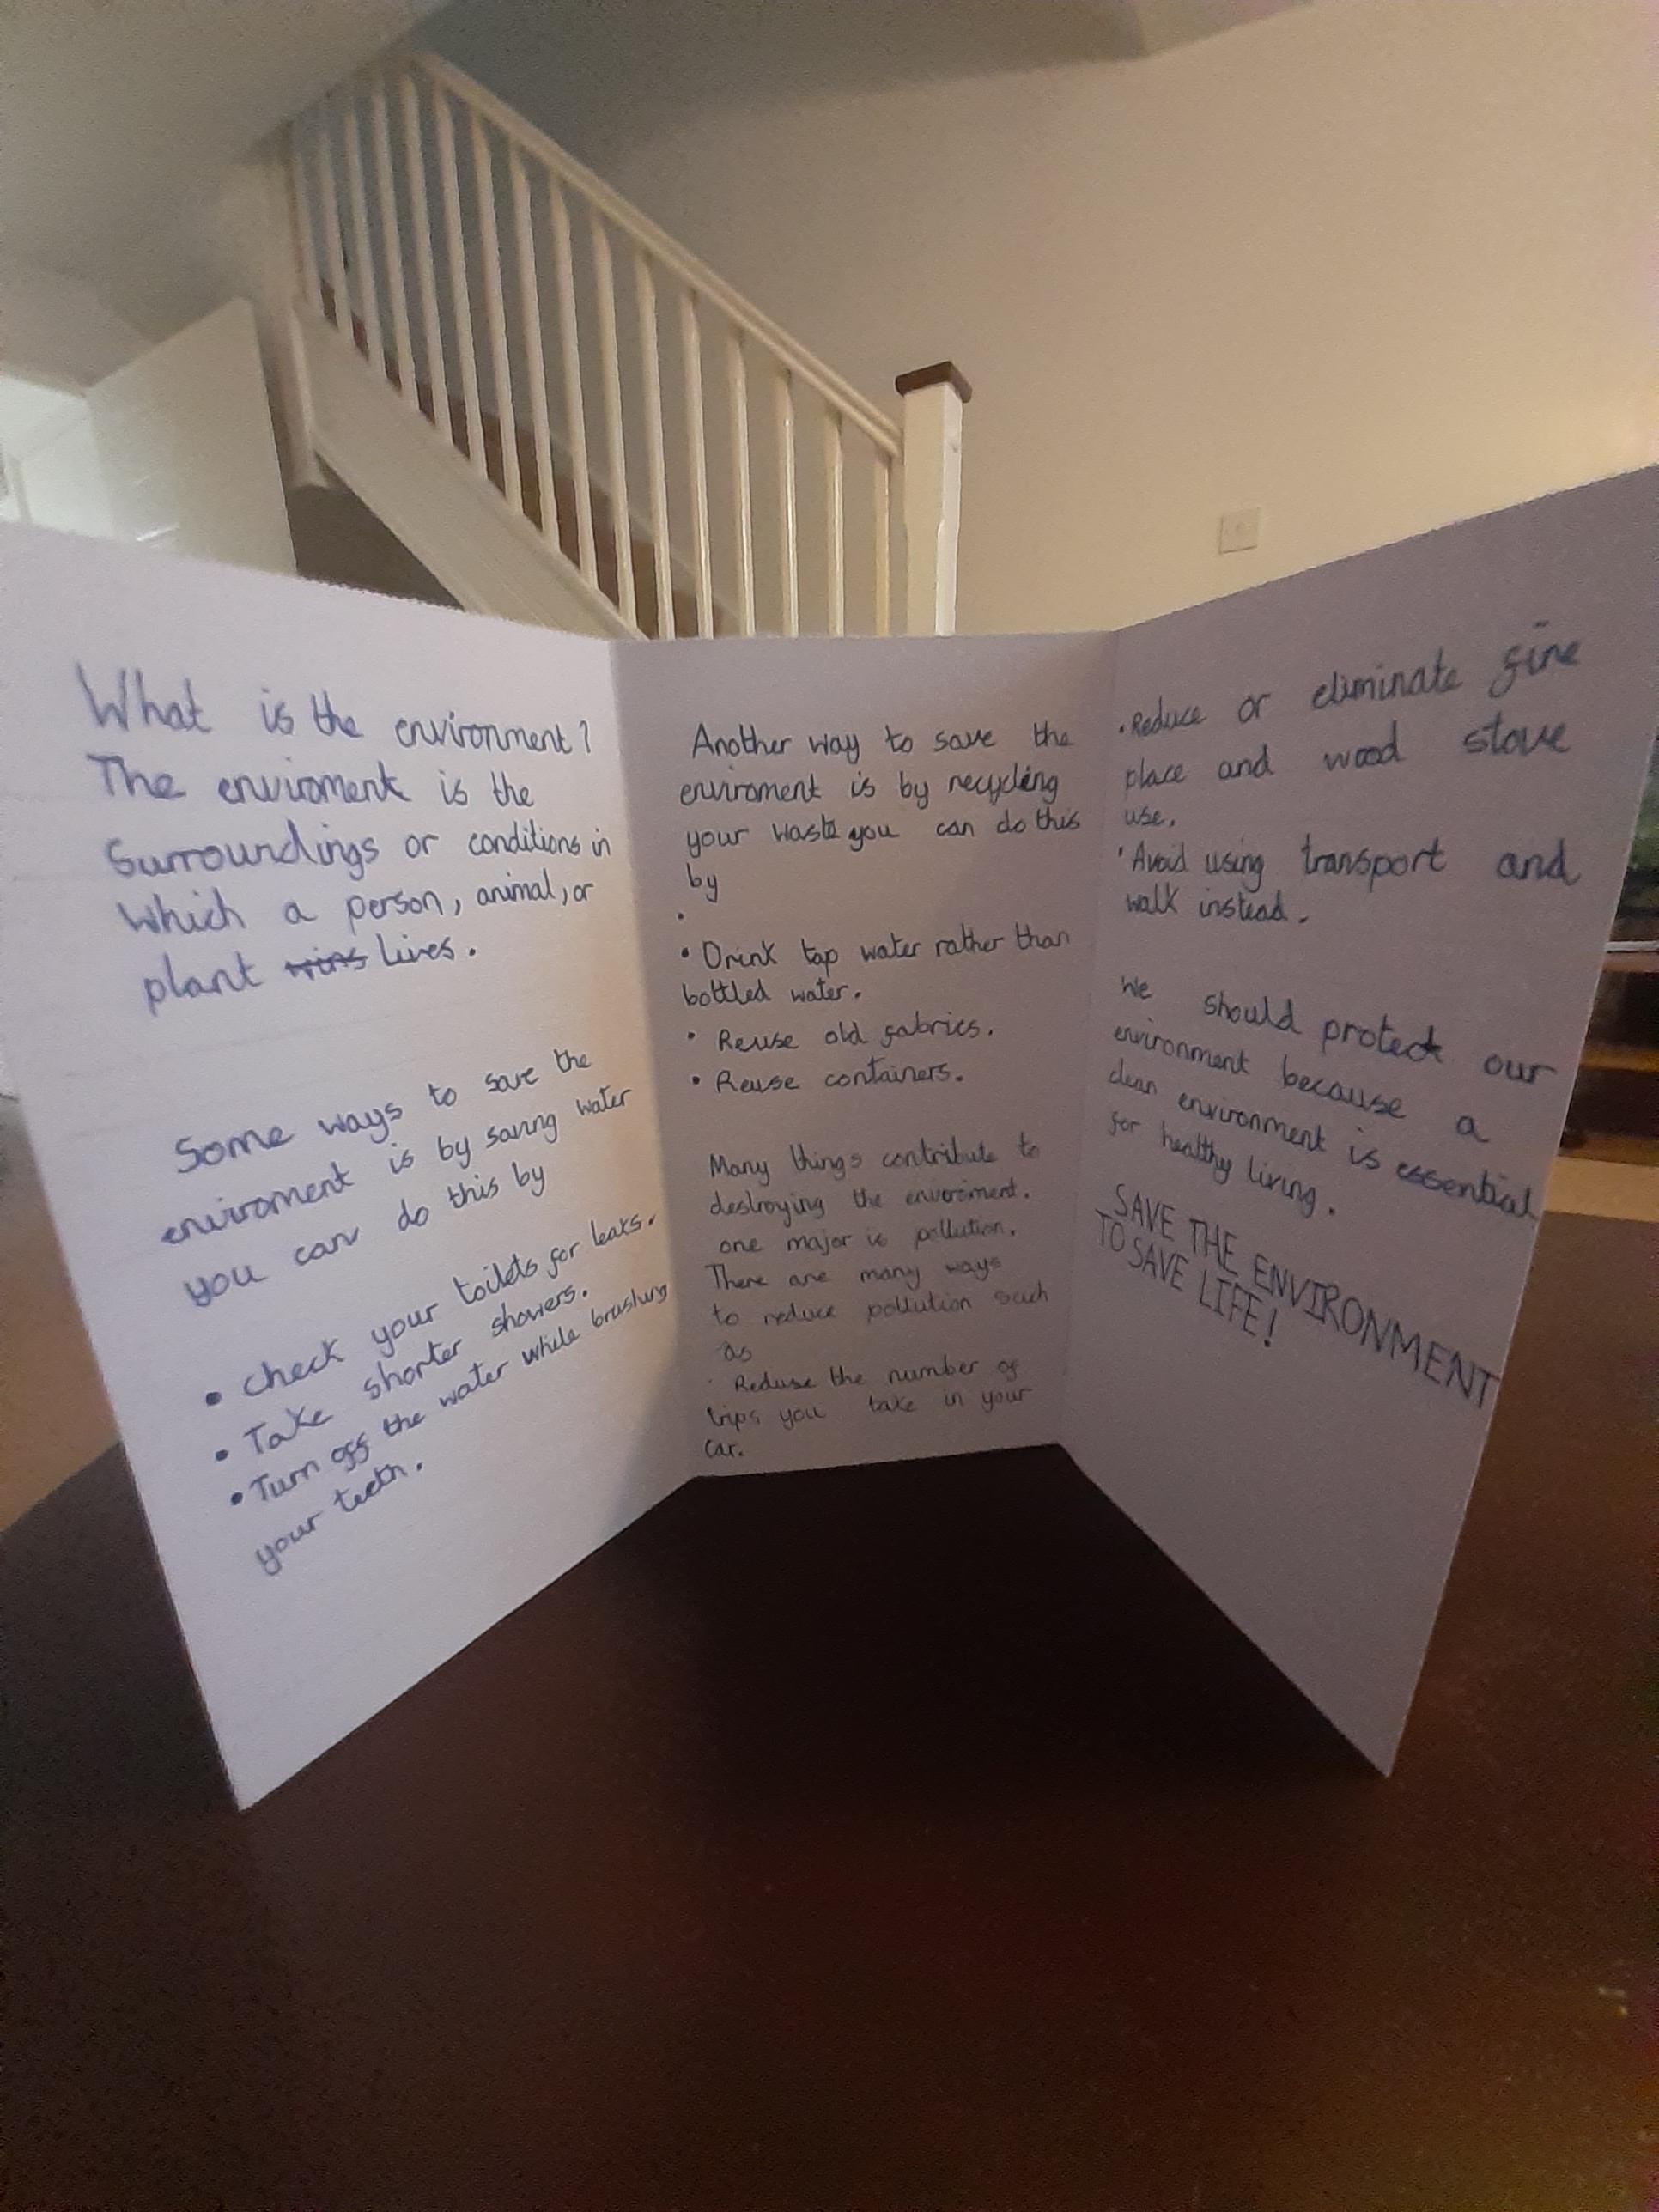 What is the environment?
The enviroment is the
Surroundings or conditions in
which a person, animal, or
plant lives.
Some ways to save the
enviroment is by saving water
you can do this by
• check your toilets for leaks.
• Take shorter showers.
• Turn off the water while brushing
your teeth.
Another way to save the
enviroment is by recycling
your waste you can do this
by
•
• Drink tap water rather than
bottled water.
• Reuse old fabrics.
• Reuse containers.
Many things contribute to
destroying the enviroment.
one major is pollution.
There are many ways
to reduce pollution such
as
• Reduse the number of
trips you take in your
car.
• Reduce or eliminate fire
place and wood stove
use.
• Avoid using transport and
walk instead.
We should protect our
environment because a
clean environment is essential
for healthy living.
SAVE THE ENVIRONMENT
TO SAVE LIFE!